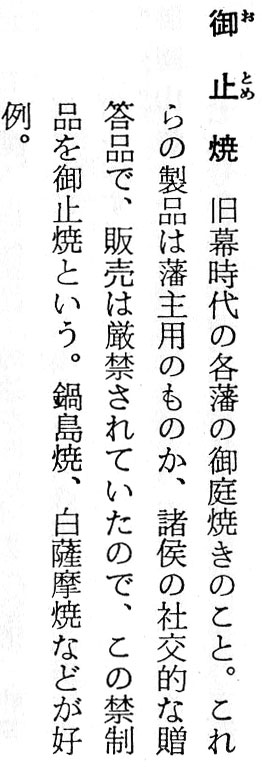 御止焼　旧幕時代の各藩の御庭焼きのこと。これ
らの製品は藩主用のものか、諸侯の社交的な贈
答品で、販売は厳禁されていたので、この禁制
品を御止焼という。鍋島焼、白薩摩焼などが好
例。
おとめ